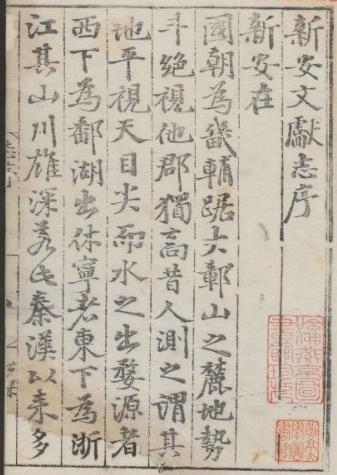 新安文獻志序
新安在
國朝為畿輔踞大鄣山之麓地勢
斗絶視他郡獨高昔人測之謂其
地平視天目尖而水之出婺源者
西下為鄱湖出休寧者東下為浙
江其山川雄深若此秦漢以來多